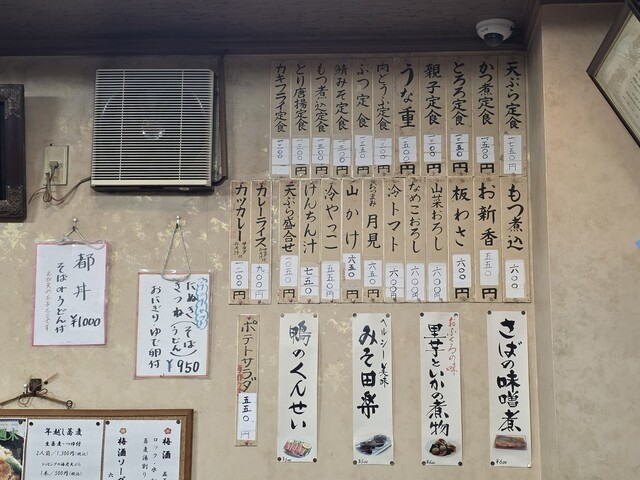 天ぷら定食 一、七五〇円
かつ煮定食 一、五〇〇円
とろろ定食 一、二五〇円
親子定食 一、二〇〇円
うな重
ぶつ定食
鯖みそ定食 一、三〇〇円
もつ煮込定食 一、三〇〇円
とり唐揚定食 一、三〇〇円
カキフライ定食
もつ煮込 六〇〇
お新香 五五〇円
板わさ 六〇〇円
山菜おろし 六〇〇円
なめこおろし 六〇〇円
冷トマト 六〇〇円
おつまみ 月見 六五〇円
山かけ 六五〇円
冷やっこ 五五〇円
けんちん汁 七五〇円
天ぷら盛合せ 一、〇五〇円
カレーライス 九〇〇円
カツカレー 一、二〇〇円
さばの味噌煮
おふくろの味
里芋といかの煮物
ヘルシー美味
みそ田楽
鴨のくんせい
ポテトサラダ 五五〇円
たぬき(そば
きつね(うどん)
おにぎり ゆで卵付
¥950
都丼
¥1000
そばorうどん付
梅酒
ロック・水
蕎麦湯割り
梅酒ソーダ
年越し蕎麦
生蕎麦・つゆ付
2人前/1,300円(税込)